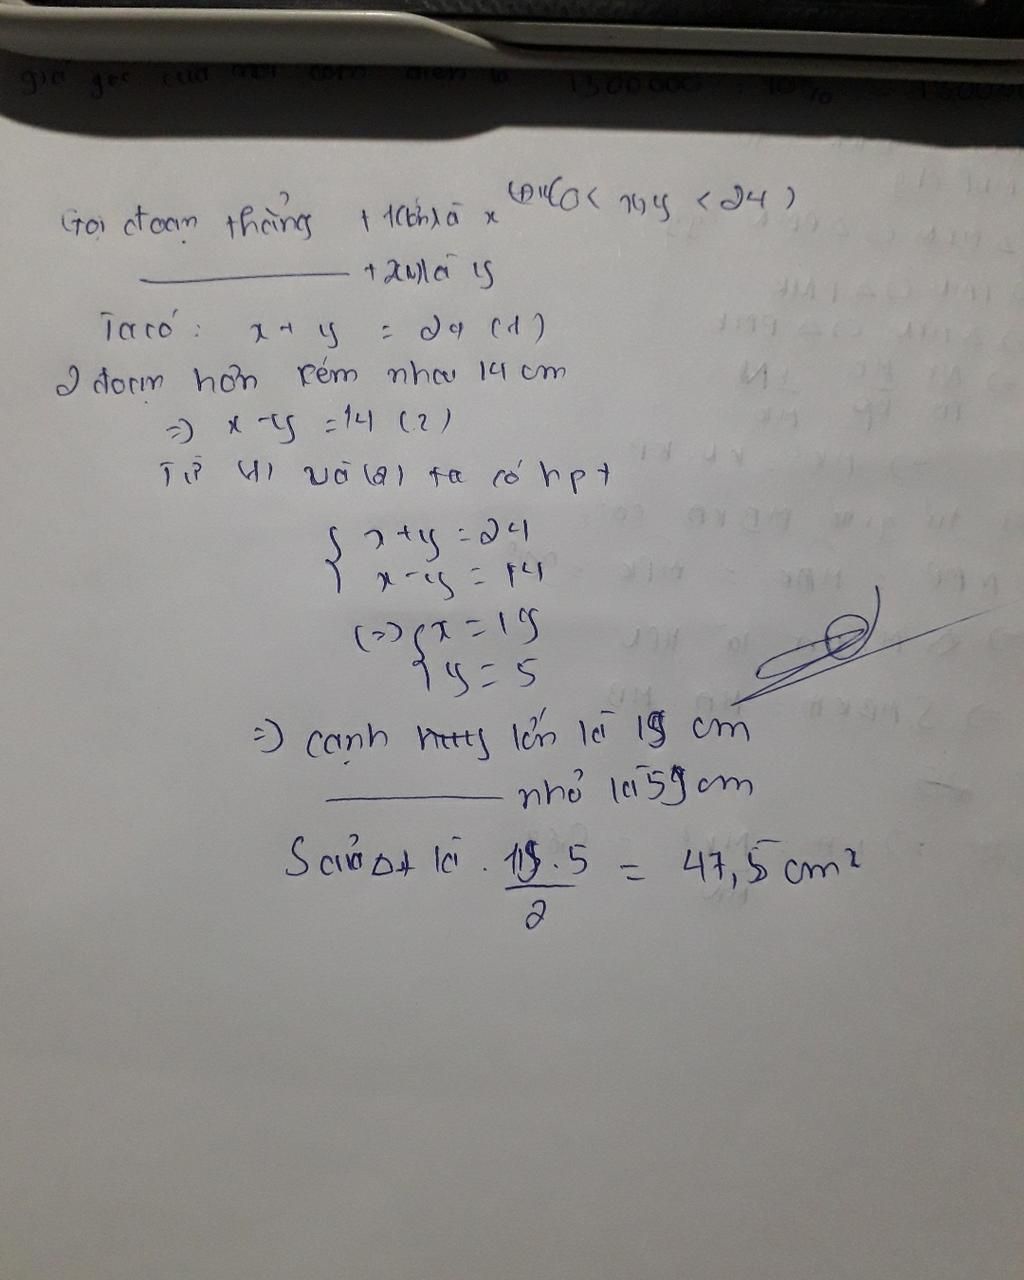 giá gốc của 1300000 10%
Gọi đoạn thẳng t1(lớn) là x (cm) (0 < x, y < 24)
t2(n) là y
Ta có: x + y = 24 (1)
2 đoạn hơn kém nhau 14 cm
=> x - y = 14 (2)
Từ (1) và (2) ta có hpt
x + y = 24
x - y = 14
(=>) x = 19
y = 5
=> cạnh lớn là 19 cm
nhỏ là 5 cm
S của Δt là . 19.5 = 47,5 cm²
2